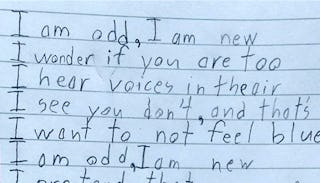 I am odd, I am new
I wonder if you are too
I hear voices in the air
I see you don't, and that's
I want to not feel blue
I am odd, I am new
I